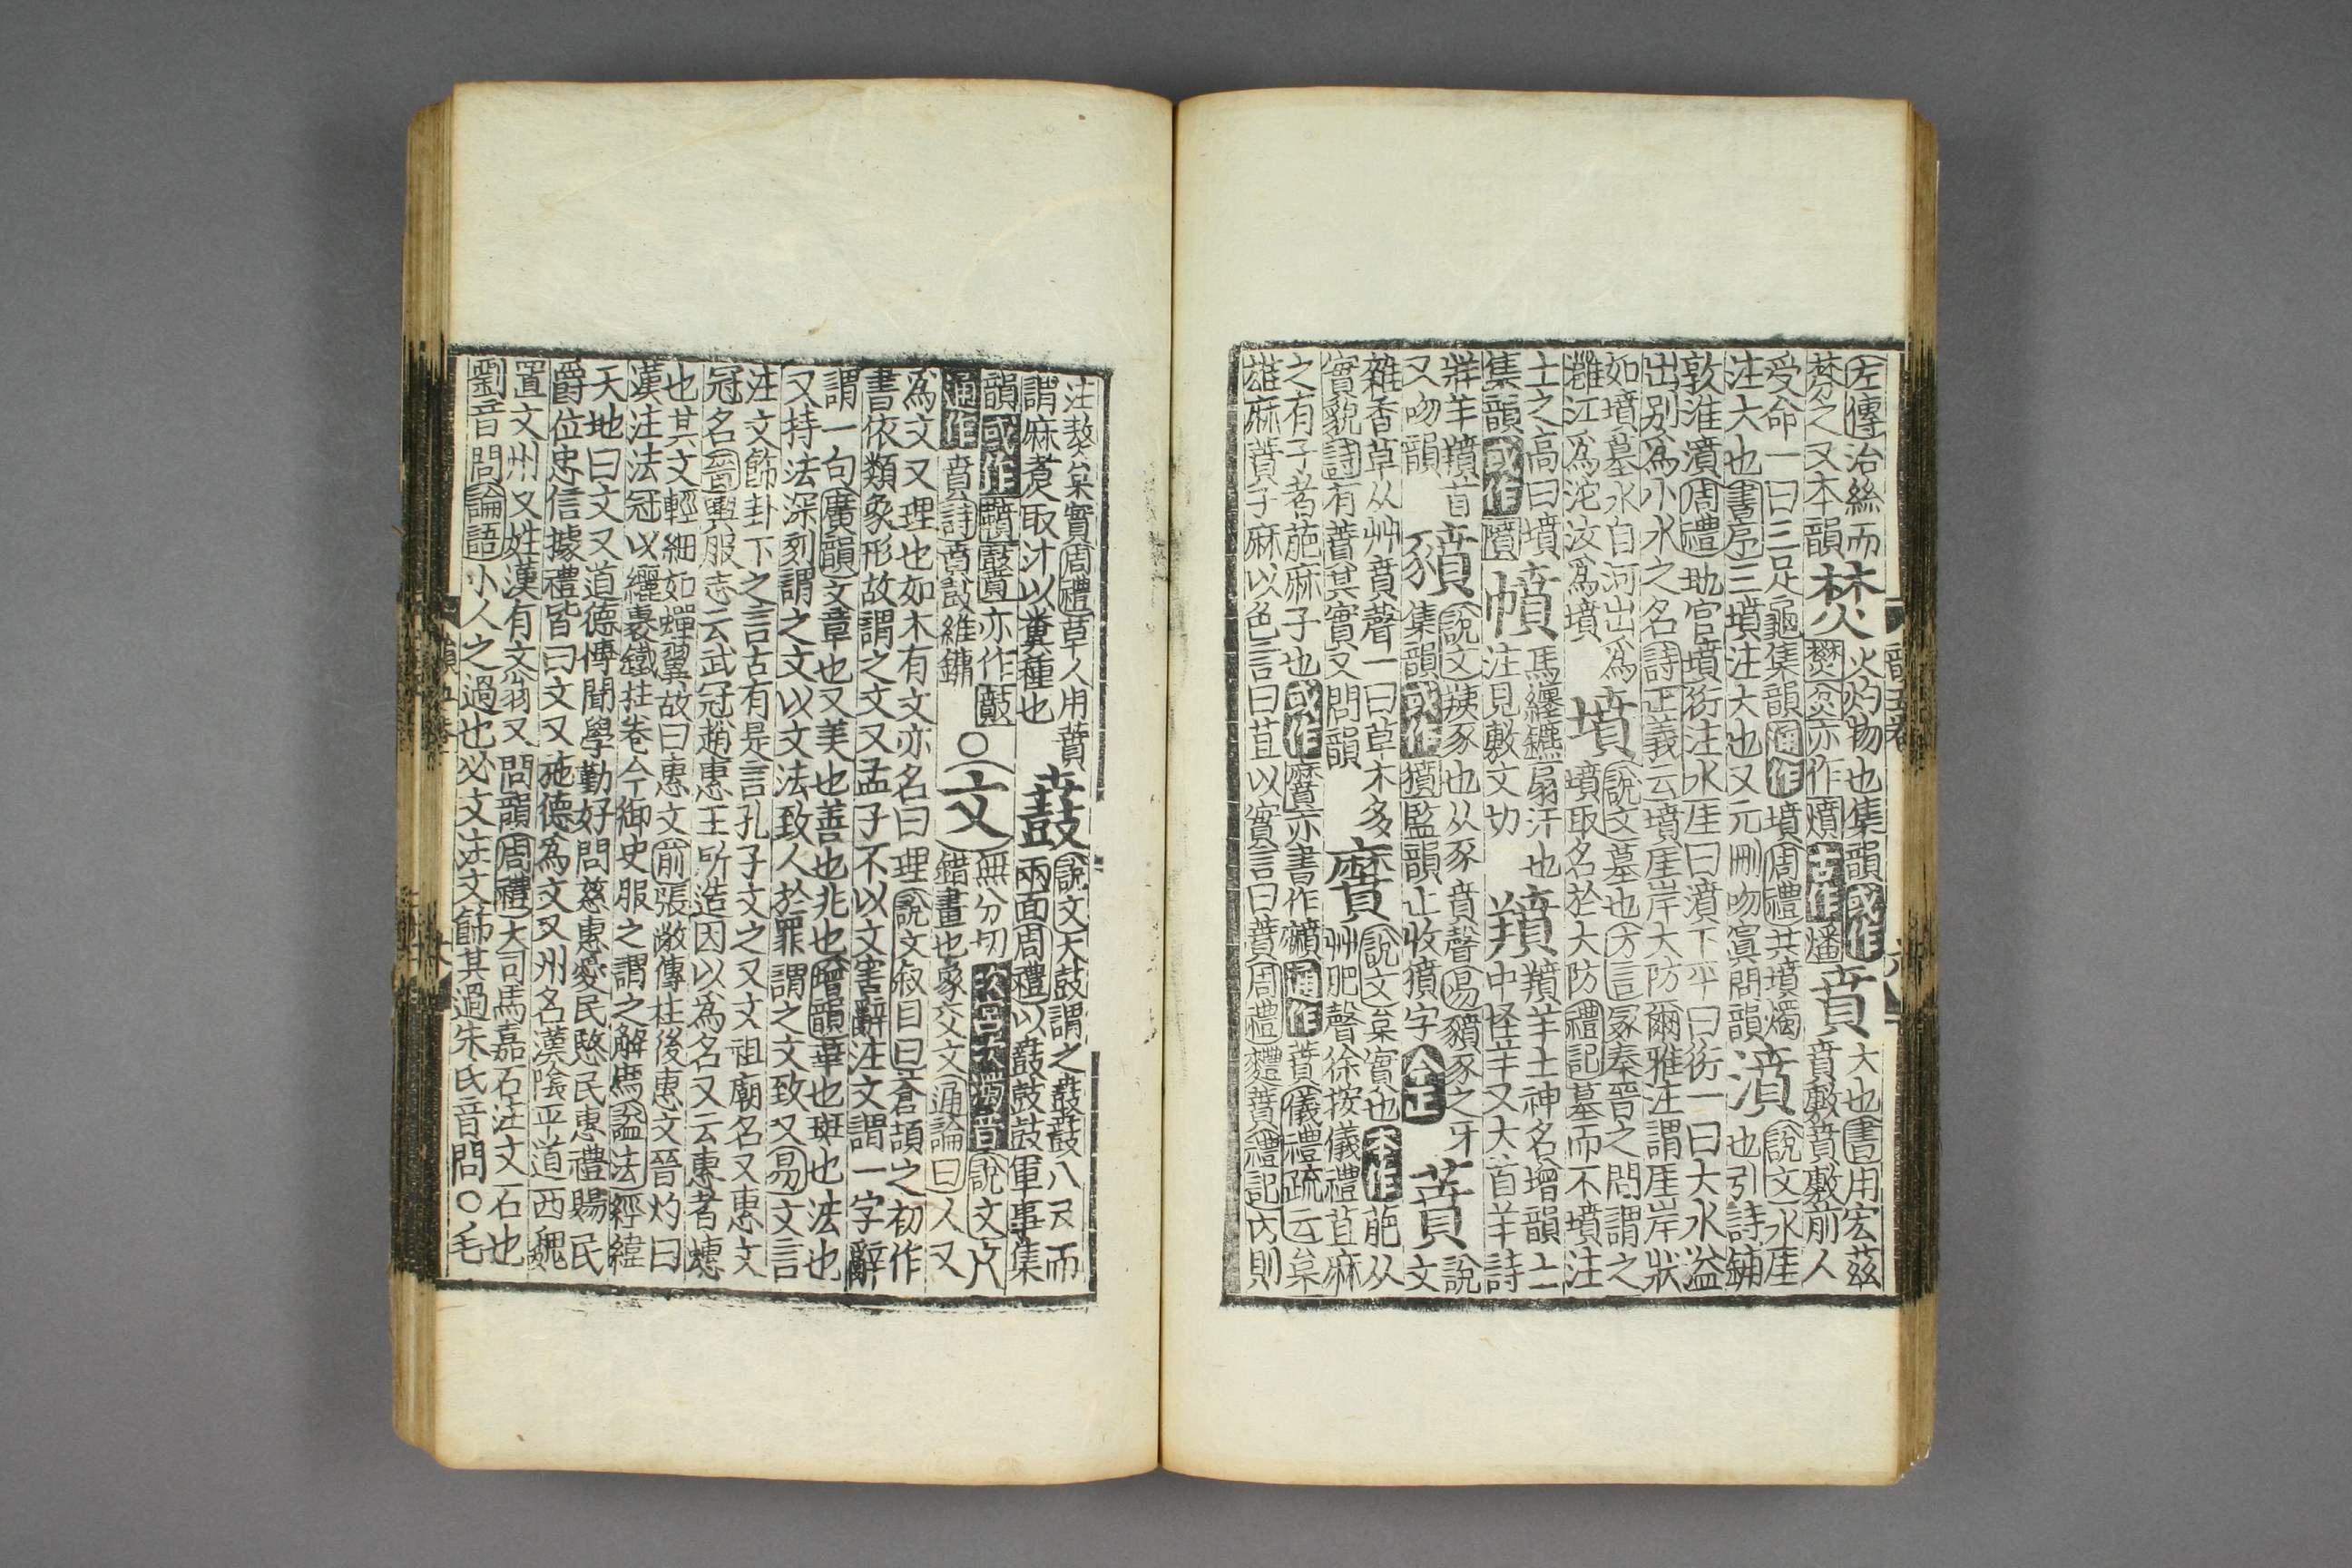 左傳治絲而
棼之又本韻
焚
火灼物也集韻或作
燓炃亦作燌古作燔
賁
大也書用宏茲
賁敷賁敷前人
受命一曰三足龜集韻通作墳周禮共墳燭
濆
說文水厓
也引詩鋪
注大也書序三墳注大也又元刪吻寘問韻
敦淮濆周禮地官墳衍注水厓曰濆下平曰衍一曰大水溢
出別為小水之名詩正義云墳厓岸大防爾雅注謂厓岸狀
如墳墓水自河出為
灉江為沱汝為墳
墳
說文墓也方言冢秦晉之間謂之
墳取名於大防禮記墓而不墳注
土之高曰墳
集韻或作隫
幩
馬纏鑣扇汗也
注見敷文切
羵
羵羊土神名增韻土
中怪羊又大首羊詩
牂羊羵首
又吻韻
豶
說文羠豕也从豕賁聲易豶豕之牙
集韻或作獖監韻止收獖字今正
蕡
說
文
雜香草从艸賁聲一曰草木多
實貌詩有蕡其實又問韻
黂
說文枲實也本作萉从
艸肥聲徐按儀禮苴麻
之有子者萉麻子也或作黂亦書作䕅通作蕡儀禮疏云枲
雄麻蕡子麻以色言曰苴以實言曰蕡周禮豊蕡禮記內則
注熬枲實周禮草人用蕡
謂麻煮取汁以糞種也
鼖
說文大鼓謂之鼖鼓八尺而
兩面周禮以鼖鼓鼓軍事集
韻或作鞼𪔵亦作鼖
通作賁詩賁鼓維鏞
○文
無分切次宮次濁音說文文
錯畫也象交文通論曰人又
為文又理也如木有文亦名曰理說文叙目曰蒼頡之初作
書依類象形故謂之文又孟子不以文害辭注文謂一字辭
謂一句廣韻文章也又美也善也兆也增韻華也斑也法也
又持法深刻謂之文以文法致人於罪謂之文致又易文言
注文飾卦下之言古有是言孔子文之又文祖廟名又惠文
冠名晉輿服志云武冠趙惠王所造因以為名又云惠者蟪
也其文輕細如蟬翼故曰惠文前張敞傳柱後惠文晉灼曰
漢注法冠以纚裹鐵拄卷今御史服之謂之解廌謚法經緯
天地曰文又道德博聞學勤好問慈惠愛民愍民惠禮賜民
爵位忠信據禮皆曰文又施德為文又州名漢陰平道西魏
置文州又姓漢有文翁又問韻周禮大司馬嘉石注文石也
劉音問論語小人之過也必文注文飾其過朱氏音問○毛